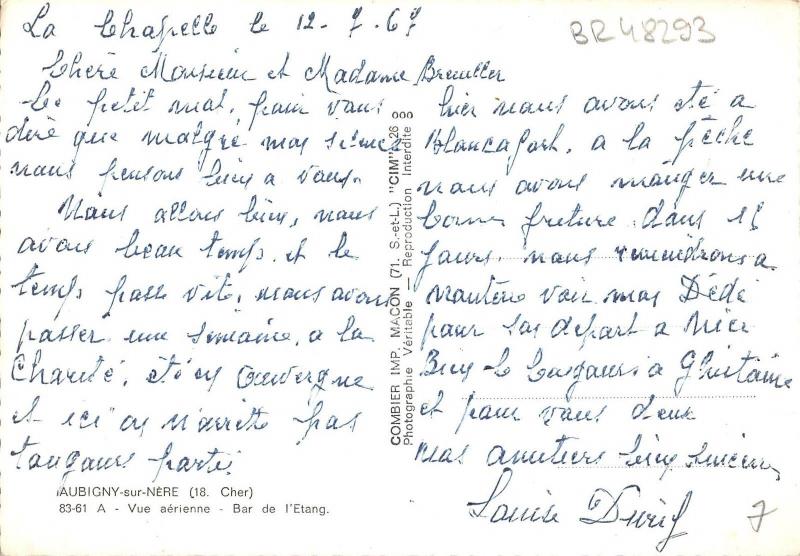 La Chapelle le 12-7-67
BR48293
Chère Monsieur et Madame
Le petit mot, pour vous
dire que malgré mos
nous pensons bien a vous.
Nous allons bien, nous
avons beau temps et le
temps passe vite, nous avons
passer une semaine, a la
Charité, été en Auvergne
et ici on n'arrette pas
tougours partis
hier nous avons été a
Blancafort, a la pêche
nous avons manger une
bonne friture dans 15
jours nous reviendrons a
Nanterre voir mos Dédé
pour son depart a Nice
Bien le bongours a Ghislaine
et pour vous deux
Mos amitiers bien sincères
Louise
7
COMBIER IMP. MACON (71. S.-et-L.) "CIM" 26 000
Photographie Véritable - Reproduction Interdite
AUBIGNY-sur-NÈRE (18. Cher)
83-61 A - Vue aérienne - Bar de l'Etang.